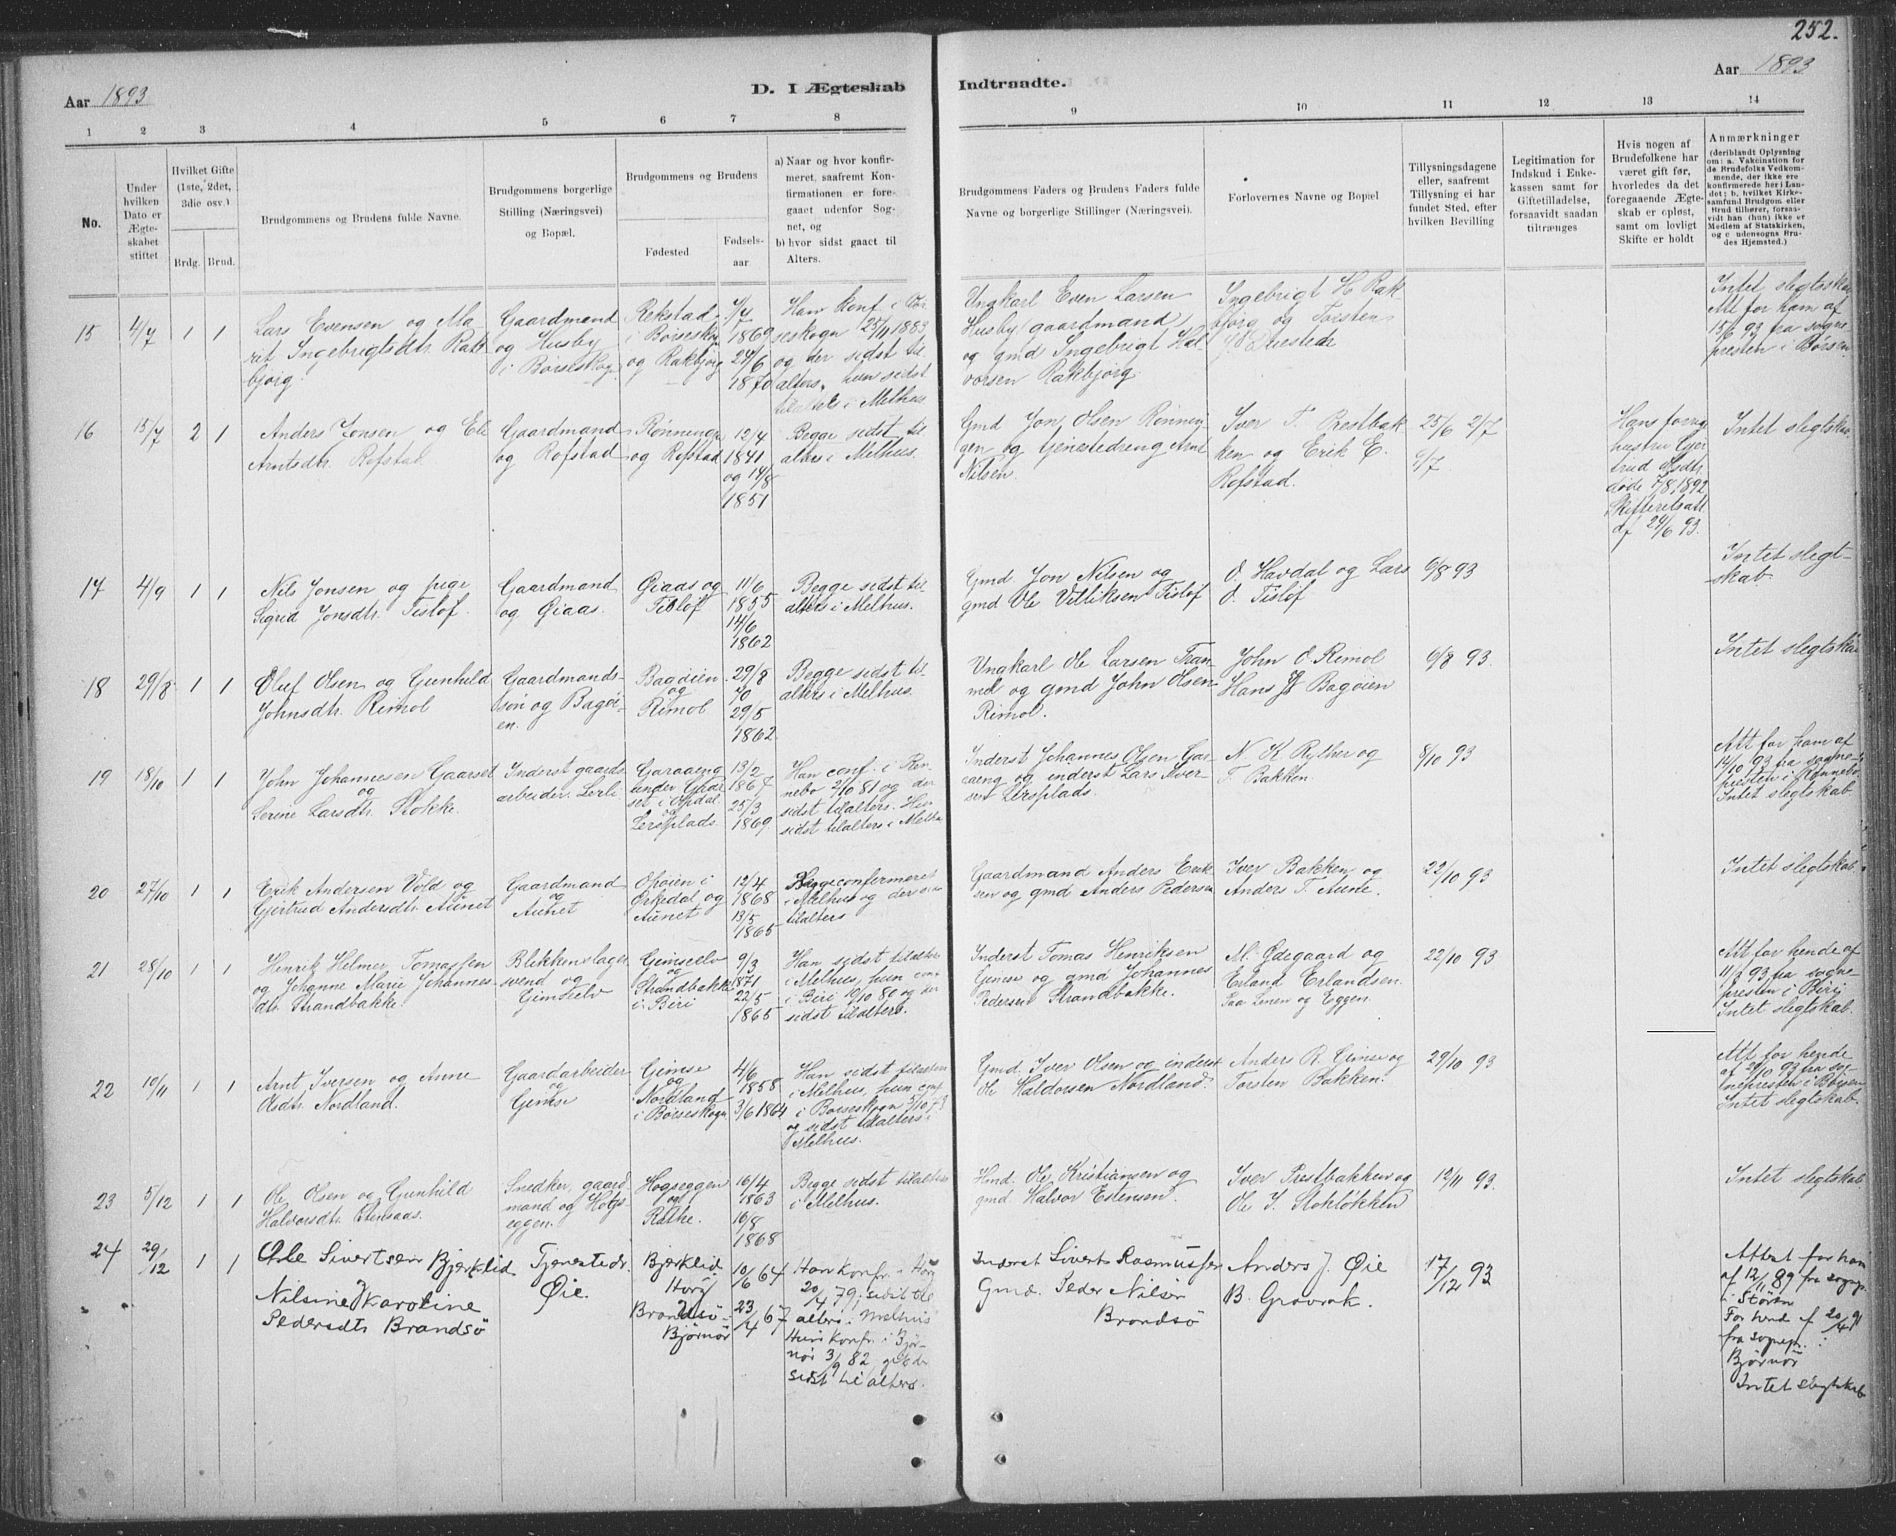 252.
Aar 1893
D. I Ægteskab Indtraadte.
Aar 1893
1 2 3 4 5 6 7 8 9 10 11 12 13 14
No.
Under hvilken Dato er Ægteskabet stiftet
Hvilket Gifte (1ste, 2det, 3die osv.)
Brdg. Brud.
Brudgommens og Brudens fulde Navne.
Brudgommens borgerlige Stilling (Næringsvei) og Bopæl.
Brudgommens og Brudens
Fødested
Fødselsaar
a) Naar og hvor konfirmeret, saafremt Konfirmationen er foregaaet udenfor Sognet, og
b) hvor sidst gaaet til Alters.
Brudgommens Faders og Brudens Faders fulde Navne og borgerlige Stillinger (Næringsvei).
Forlovernes Navne og Bopæl
Tillysningsdagene eller, saafremt Tillysning ei har fundet Sted, efter hvilken Bevilling
Legitimation for Indskud i Enkekassen samt for Giftetilladelse, forsaavidt saadan tiltrænges
Hvis nogen af Brudefolkene har været gift før, hvorledes da det foregaaende Ægteskab er opløst, samt om lovligt Skifte er holdt
Anmærkninger
(deriblandt Oplysning om: a. Vakcination for de Brudefolks Vedkommende, der ikke ere konfirmerede her i Landet; b, hvilket Kirkesamfund Brudgom eller Brud tilhører, forsaavidt han (hun) ikke er Medlem af Statskirken, og c udensogns Brudes Hjemsted.)
15 4/7 1 1
Lars Evensen og Ma
rit Ingebrigtsdtr. Rak
bjørg.
Gaardmand
og Husby
i Børseskog
Rekstad
i Børseskog
og Rakbjørg
4/7
1869
24/6
1870
Han konf. i Bør
seskogn 25/11 1883
og der sidst til
alters, hun sidst
tilalters i Melhus
Ungkarl Even Larsen
Husby gaardmand
og gmd Ingebrigt Hal
vorsen Rakbjørg
Ingebrigt H Rak
bjørg og Torsten
Intet slegtskab
Att for ham af
15/6 93 fra sogne
presten i Børsen
16 15/7 2 1
Anders Jonsen og Eli
Arntsdtr. Rofstad.
Gaardmand
og Rofstad
Rønningen
og Rofstad
12/4
1841
og 14/8
1851
Begge sidst til
alters i Melhus.
Gmd Jon Olsen Rønnin
gen og tjenestedreng Arnt
Nilsen.
Iver T. Prestbak
ken og Erik E.
Rofstad.
25/6 2/7
9/7
Hans forrige
hustru Gjer
trud Nsdtr.
døde 7/8 1892
Skifteretsatt
df 24/6 93.
Intet slegtskab
17 4/9 1 1
Nils Jonsen og pige
Sigrid Jonsdtr. Tisløf.
Gaardmand
og Øiaas.
Øiaas og
Tisløf
11/6
1855
14/6
1862
Begge sidst til
alters i Melhus.
Gmd Jon Nilsen og
gmd Ole Villiksen Tisløf
O. Havdal og Lars
O. Tisløf
6/8 93
Intet slegt-
skab.
18 29/8 1 1
Oluf Olsen og Gunhild
Johnsdtr. Rimol
Gaardmands-
søn og Bagøi-
en.
Bagøien
og
Rimol.
29/8
70
29/5
1862
Begge sidst til
alters i Melhus.
Ungkarl Ole Larsen Tran
md og gmd John Olsen
Rimol.
John O. Rimol
Hans Bagøien
6/8 93.
Intet slegtskab
19 18/10 1 1
John Johannesen Gaarset
og
Serine Larsdtr. Flokke.
Inderst gaards
arbeider. Lerli
Garaaeng
under Gaar
set i Opdal
og
Lersplads
13/2
1867
25/3
1869.
Han conf. i Ren
nebo 2/10 81 og der
sidst tilalters. Hun
sidst tilalters i Melhus
Inderst Johannes Olsen Gar
aaeng og inderst Lars Iver
sen Lersplads.
N. K Ryther og
T. Bakken.
8/10 93
Att for ham af
14/10 93 fra sogne-
presten i Rennebo
Intet slegtskab.
20 27/10 1 1
Erik Andersen Vold og
Gjertrud Andersdtr. Aunet
Gaardmand
og
Aunet
Opøien i
Orkedal og
Aunet
12/4
1868
13/5
1865
Begge confermeret
i Melhus og der sidst
tilalters
Gaardmand Anders Erik
sen og gmd Anders Pedersen
Iver Bakken og
Anders T. Aune.
22/10 93
Intet slegtskab.
21 28/10 1 1
Henrik Helmer Tomassen
og Johanne Marie Johannes
dtr. Strandbakke.
Blikkenslager
svend og
Gimselv
Gimselv
og
Strandbakke
i Biri
9/3
1871
22/5
1865
Han sidst tilalters
i Melhus, hun conf
i Biri 10/10 80 og der
sidst tilalters.
Inderst Tomas Henriksen
Gimse og gmd Johannes
Pedersen Strandbakke.
M. Ødegaard og
Erland Erlandsen.
paa Lenen og Eggen.
22/10 93
Att for hende af
11/9 93 fra sogne
presten i Biri
Intet slegtskab.
22 10/11 1 1
Arnt Iversen og Anne
Olsdtr. Nordland.
Gaardarbeider
og
Gimse
Gimse
og
Nordland
i Børseskogn
4/6
1858.
3/6 1864
Han sidst tilalters
i Melhus, hun conf
i Børseskogn 5/10 73
og sidst tilalters i
Melhus.
Gmd. Iver Olsen og inderst
Ole Haldorsen Nordland.
Anders R. Gimse og
Torsten Bakken.
29/10 93
Att for hende
af 24/10 93 fra sog
nepresten i Børsen
Intet slegtskab.
23 5/12 1 1
Ole Olsen og Gunhild
Halvorsdtr. Stensaas.
Snedker, gaard
mand og Høgs
eggen.
Høgseggen
og
Rathe.
16/4
1863
16/8
1868
Begge sidst tilalters
i Melhus.
Hmd. Ole Kristiansen og
gmd Halvor Estensen.
Iver Prestbakken og
Ole J. Stokløkken
12/11 93.
Intet slegtskab.
24 29/12 1 1
Ole Sivertsen Bjerklid
Nilsine Karoline
Pedersdtr Brandsø
Tjenestedr.
Øie.
Bjerklid
Horg
Brandsø
Bjørnør
10/6 64
23/4 67
Han konfr. i Horg
20/4 79; sidst til
alters i Melhus
Hun konfr. i Bjør
nør 3/9 82, og der
sidst til alters.
Inderst Sivert Rasmussen
Gmd. Peder Nilsen
Brandsø
Anders J. Øie
B. Gravrok.
17/12 93
Attest for ham
af 12/11 89 fra sognep.
i Støren
For hend f 20/4 91
fra sognepr. i
Bjørnør
Intet slegtskab